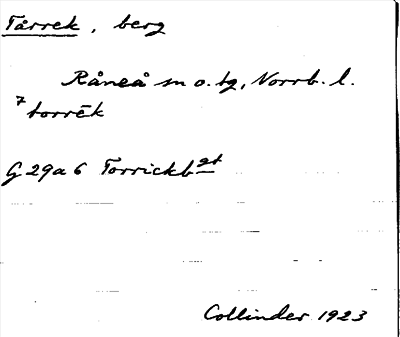 Tårrek, berg
Råneå sn o. tg, Norrb. l.
⁷torrēk
G 29a6 Torrickb gt
Collinder 1923